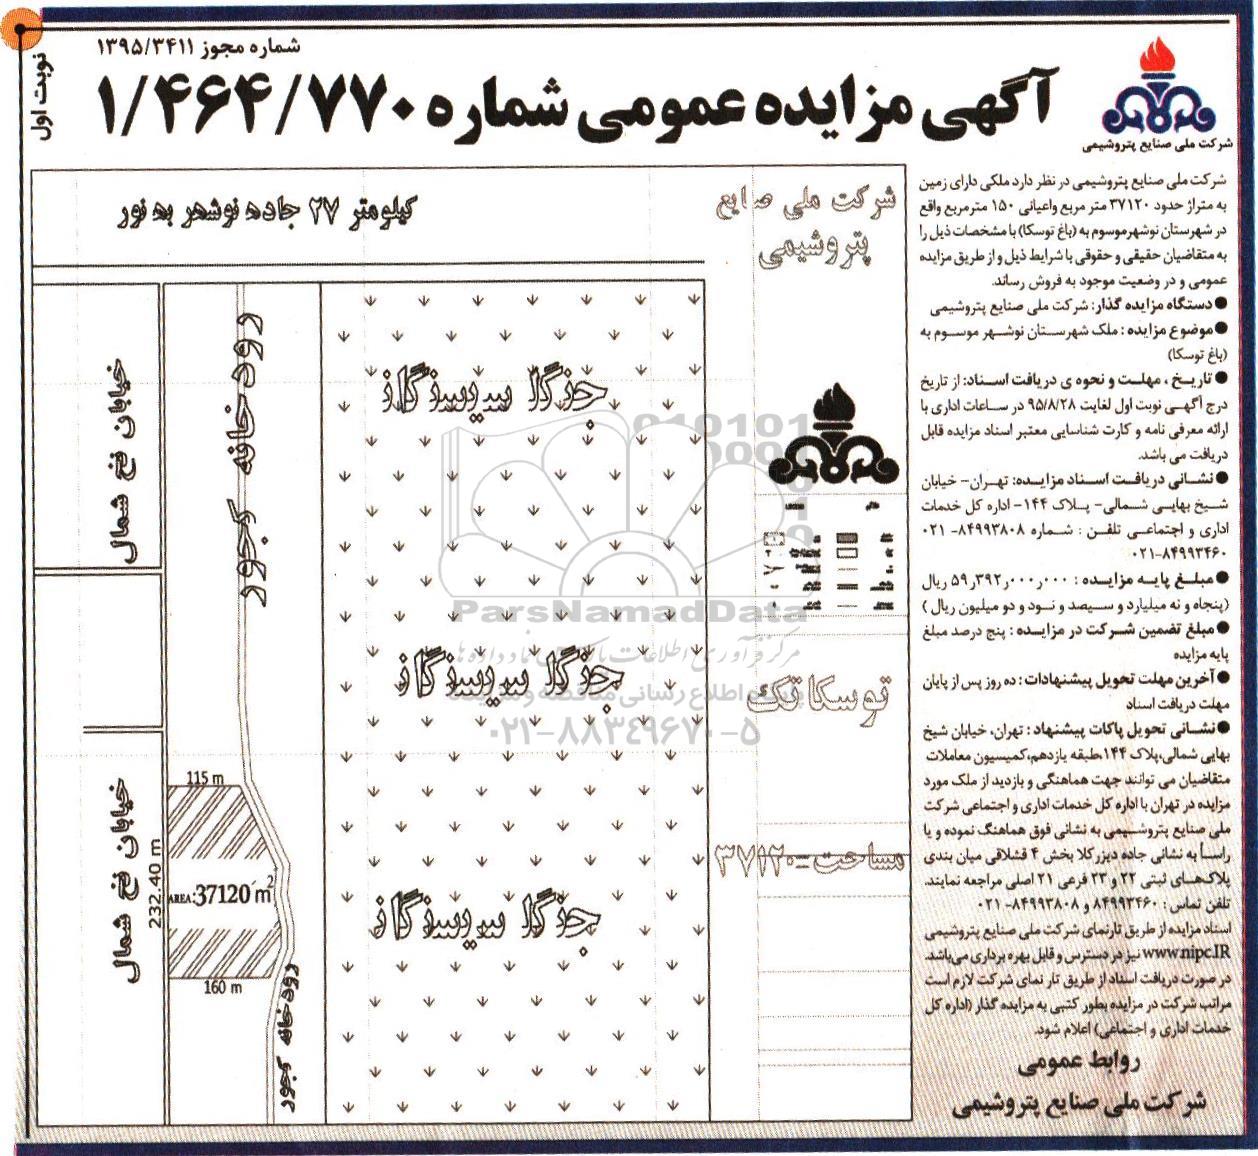 شماره مجوز ۱۳۹۵/۳۴۱۱
نوبت اول
آگهی مزایده عمومی شماره ۱/۴۶۴/۷۷۰
شرکت ملی صنایع پتروشیمی
شرکت ملی صنایع پتروشیمی در نظر دارد ملکی دارای زمین
به متراژ حدود ۳۷۱۲۰ متر مربع واعیانی ۱۵۰ مترمربع واقع
در شهرستان نوشهرموسوم به (باغ توسکا) با مشخصات ذیل را
به متقاضیان حقیقی و حقوقی با شرایط ذیل و از طریق مزایده
عمومی و در وضعیت موجود به فروش رساند.
●دستگاه مزایده گذار: شرکت ملی صنایع پتروشیمی
●موضوع مزایده : ملک شهرستان نوشهر موسوم به
(باغ توسکا)
● تاریخ ، مهلت و نحوه ی دریافت اسناد: از تاریخ
درج آگهی نوبت اول لغایت ۹۵/۸/۲۸ در ساعات اداری با
ارائه معرفی نامه و کارت شناسایی معتبر اسناد مزایده قابل
دریافت می باشد.
●نشانی دریافت اسناد مزایده: تهران- خیابان
شیخ بهایی شمالی- پلاک ۱۴۴- اداره کل خدمات
اداری و اجتماعی تلفن : شماره ۸۴۹۹۳۸۰۸- ۰۲۱
۰۲۱-۸۴۹۹۳۴۶۰
●مبلغ پایه مزایده : ۵۹٫۳۹۲٫۰۰۰٫۰۰۰ ریال
(پنجاه و نه میلیارد و سیصد و نود و دو میلیون ریال )
●مبلغ تضمین شرکت در مزایده : پنج درصد مبلغ
پایه مزایده
●آخرین مهلت تحویل پیشنهادات : ده روز پس از پایان
مهلت دریافت اسناد
●نشانی تحویل پاکات پیشنهاد : تهران، خیابان شیخ
بهایی شمالی،پلاک ۱۴۴،طبقه یازدهم،کمیسیون معاملات
متقاضیان می توانند جهت هماهنگی و بازدید از ملک مورد
مزایده در تهران با اداره کل خدمات اداری و اجتماعی شرکت
ملی صنایع پتروشیمی به نشانی فوق هماهنگ نموده و یا
راساً به نشانی جاده دیزرکلا بخش ۴ قشلاقی میان بندی
پلاک‌های ثبتی ۲۲ و ۲۳ فرعی ۲۱ اصلی مراجعه نمایند.
تلفن تماس : ۸۴۹۹۳۴۶۰ و ۸۴۹۹۳۸۰۸- ۰۲۱
اسناد مزایده از طریق تارنمای شرکت ملی صنایع پتروشیمی
www.nipc.IR نیز در دسترس و قابل بهره برداری می‌باشد.
در صورت دریافت اسناد از طریق تار نمای شرکت لازم است
مراتب شرکت در مزایده بطور کتبی به مزایده گذار (اداره کل
خدمات اداری و اجتماعی) اعلام شود.
روابط عمومی
شرکت ملی صنایع پتروشیمی
شرکت ملی صنایع
پتروشیمی
توسکا تک
مساحت=۳۷۱۲۰
کیلومتر ۲۷ جاده نوشهر به نور
جنگل سیسنگان
جنگل سیسنگان
جنگل سیسنگان
رودخانه کجور
رودخانه کجور
خیابان فخ شمال
خیابان فخ شمال
115 m
232.40 m
AREA:37120 m2
160 m
ParsNamadData
مرکز فرآوری اطلاعات پارس نماد داده ها
پایگاه اطلاع رسانی مناقصه و مزایده
۰۲۱-۸۸۳۴۹۶۷۰-۵